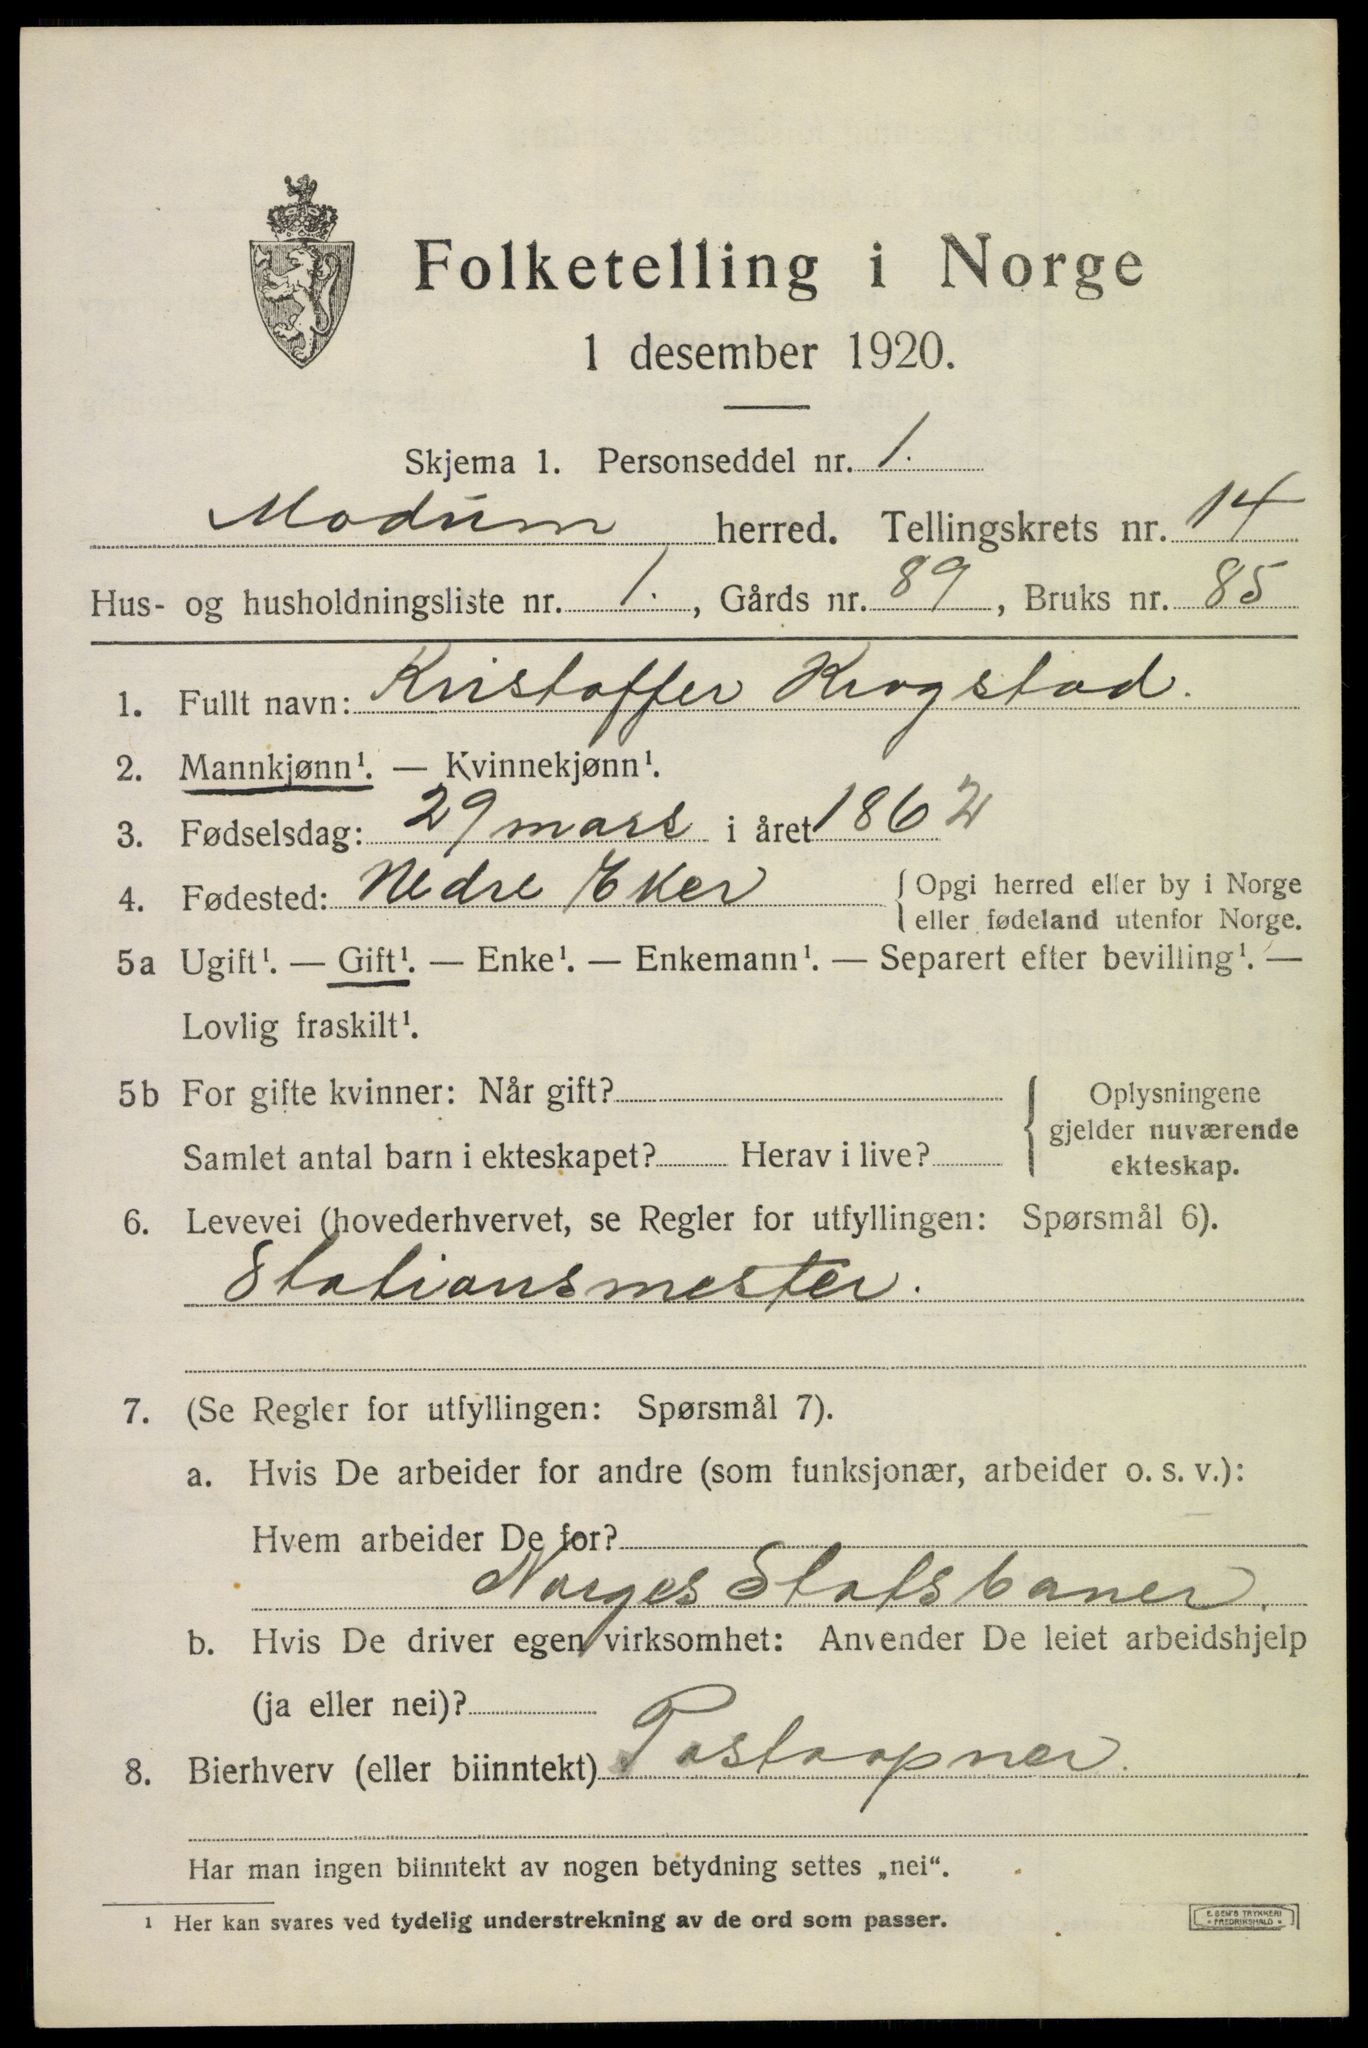 Folketelling i Norge
1 desember 1920.
Skjema 1. Personseddel nr. 1.
Modum herred. Tellingskrets nr. 14
Hus- og husholdningsliste nr. 1., Gårds nr. 89, Bruks nr. 85
1. Fullt navn: Kristoffer Krogstad.
2. Mannkjønn¹. — Kvinnekjønn¹.
3. Fødselsdag: 29 mars i året 1862
4. Fødested: Nedre Eker { Opgi herred eller by i Norge
eller fødeland utenfor Norge.
5a Ugift¹. — Gift¹. — Enke¹. — Enkemann¹. — Separert efter bevilling¹. —
Lovlig fraskilt¹.
5b For gifte kvinner: Når gift? { Oplysningene
gjelder nuværende
Samlet antal barn i ekteskapet? Herav i live? ekteskap.
6. Levevei (hovederhvervet, se Regler for utfyllingen: Spørsmål 6).
Stationsmester.
7. (Se Regler for utfyllingen: Spørsmål 7).
a. Hvis De arbeider for andre (som funksjonær, arbeider o. s. v.):
Hvem arbeider De for?
Norges Statsbaner.
b. Hvis De driver egen virksomhet: Anvender De leiet arbeidshjelp
(ja eller nei)?
8. Bierhverv (eller biinntekt) Postaapner.
Har man ingen biinntekt av nogen betydning settes „nei“.
¹ Her kan svares ved tydelig understrekning av de ord som passer.
E. SEM'S TRYKKERI
• FREDRIKSHALD •